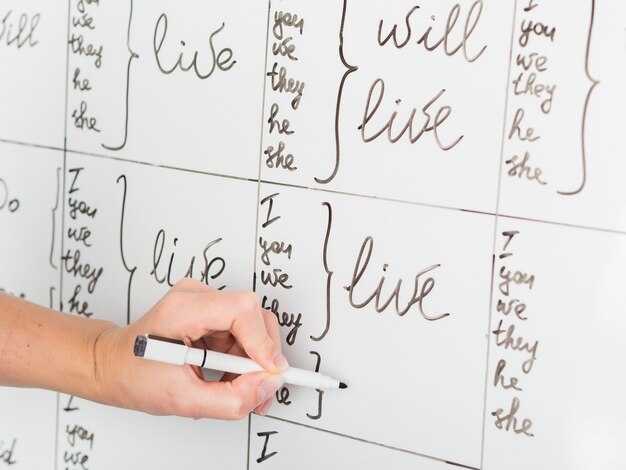 we
they
he
she
live
you
we
they
he
she
will
live
I
you
we
they
he
she
I
you
we
they
he
live
I
you
we
they
live
I
you
we
they
he
she
I
you
we
I